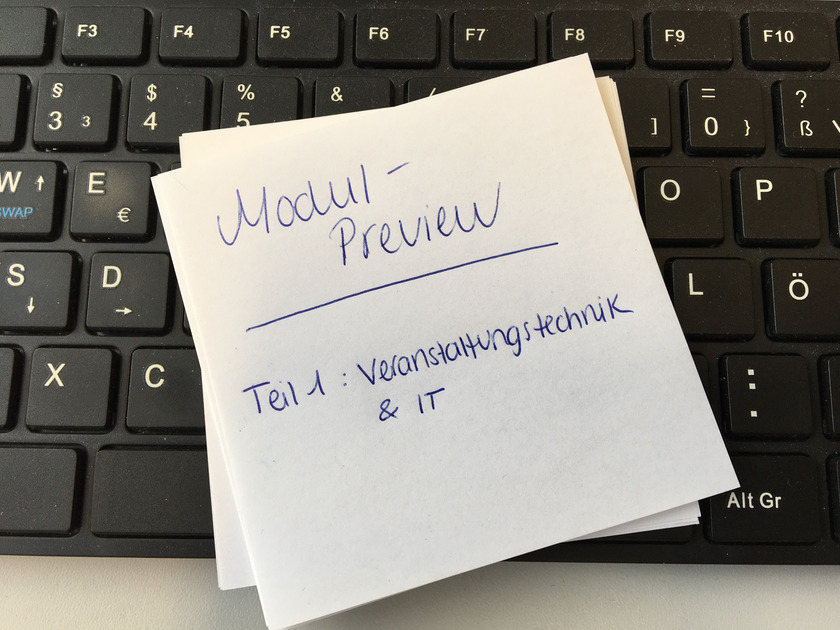 F3 F4 F5 F6 F7 F8 F9 F10
§ $ % & / = ?
3 3 4 5 ] 0 } ß \
W ↑ E O P
SWAP €
S D L Ö
↓ →
X C : .
Alt Gr
Modul-
Preview
Teil 1 : Veranstaltungstechnik
& IT